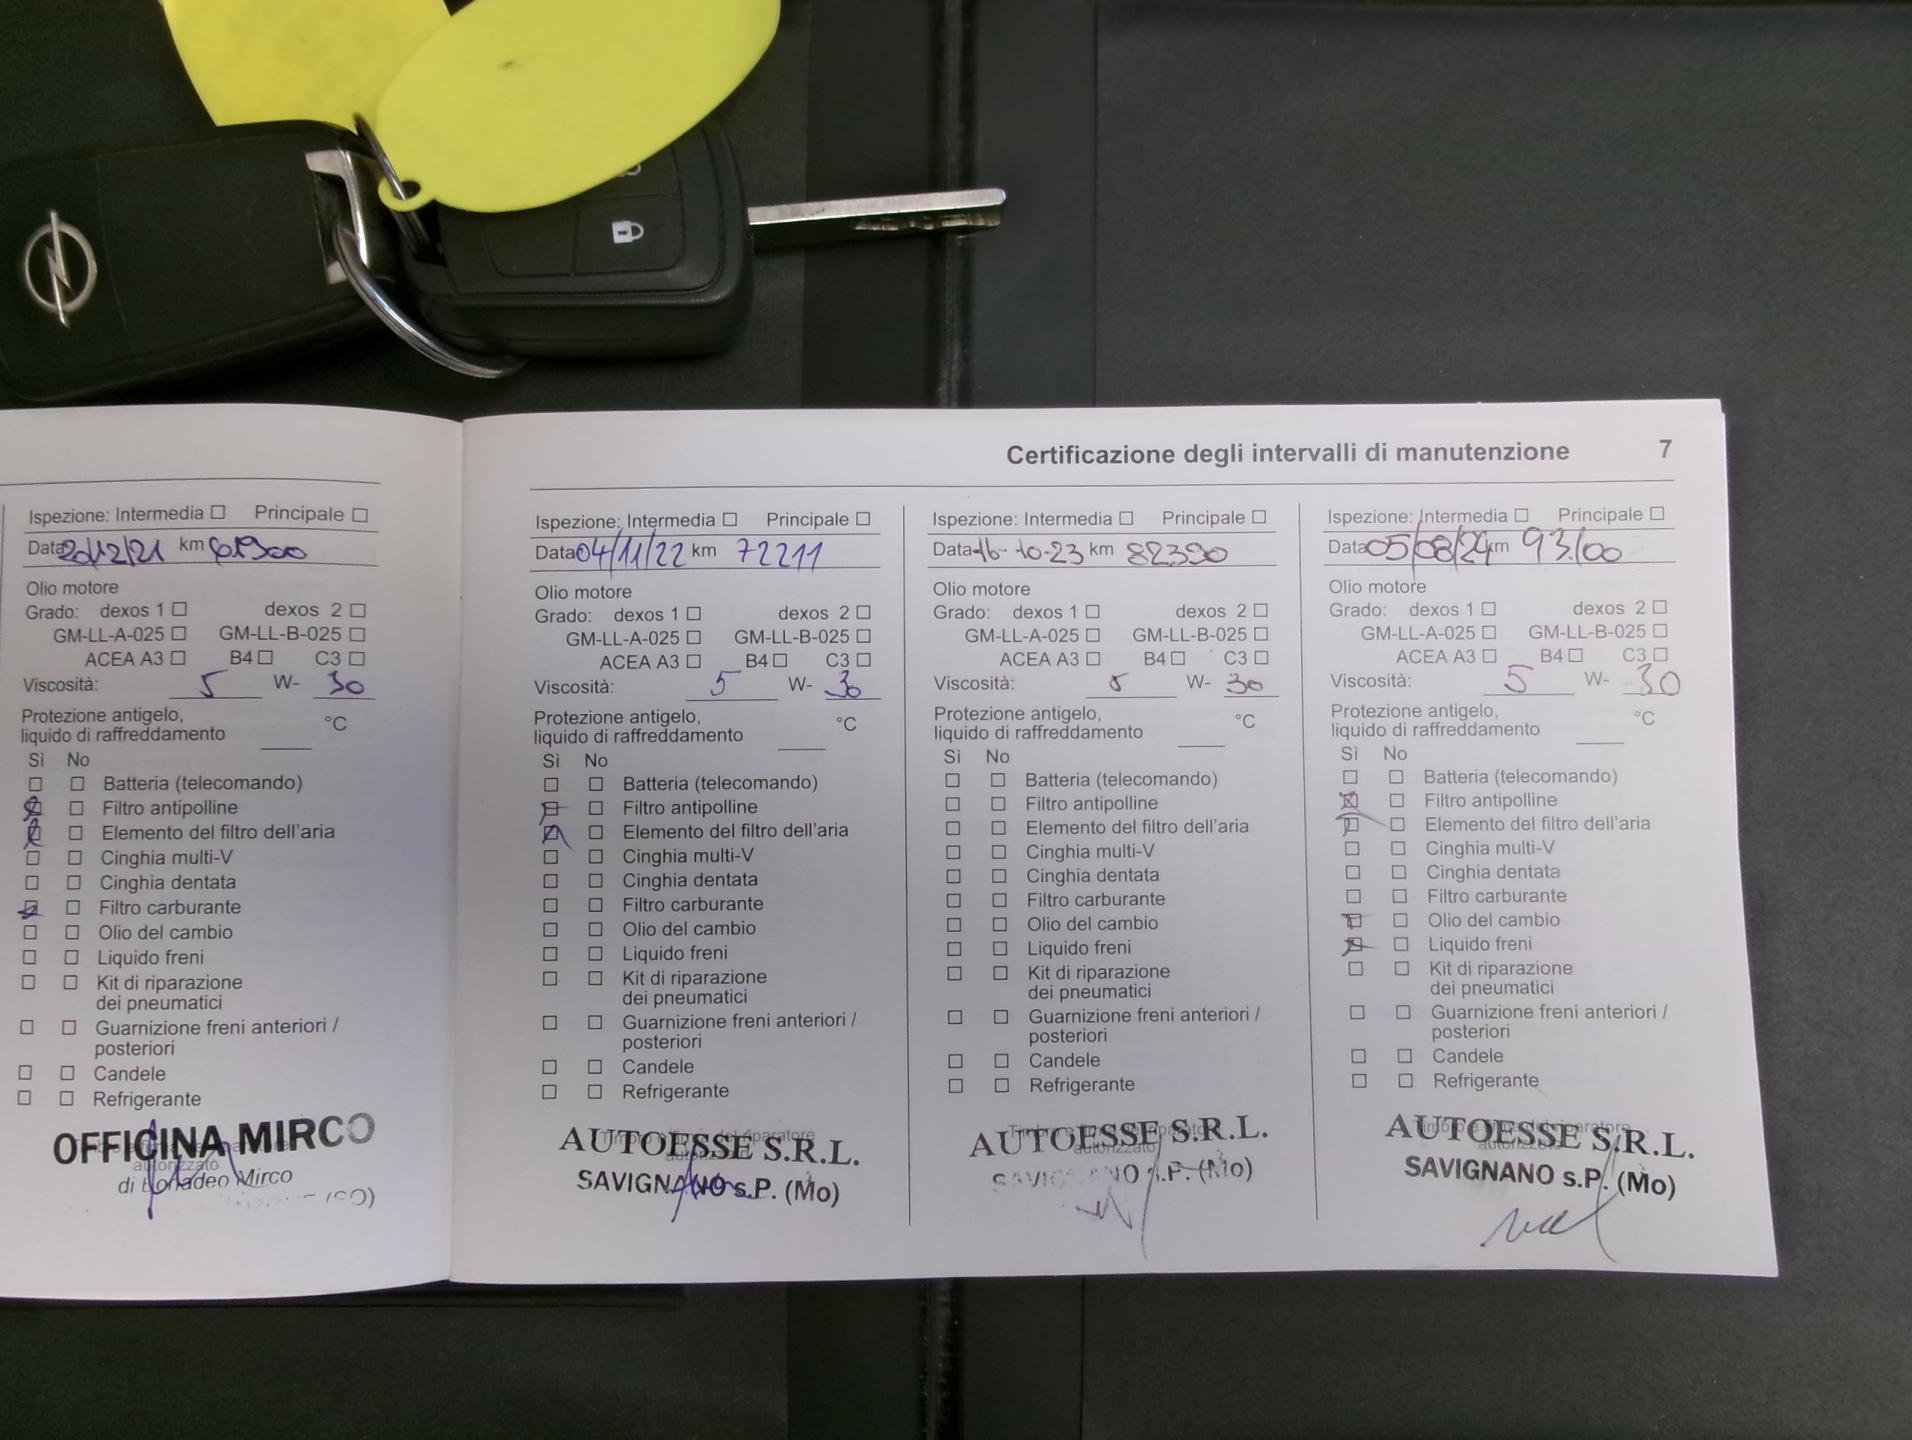 Certificazione degli intervalli di manutenzione 7
Ispezione: Intermedia ☐ Principale ☐
Data 20/12/21 km
Olio motore
Grado: dexos 1 ☐ dexos 2 ☐
GM-LL-A-025 ☐ GM-LL-B-025 ☐
ACEA A3 ☐ B4 ☐ C3 ☐
Viscosità: 5 W- 30
Protezione antigelo,
liquido di raffreddamento °C
Sì No
Batteria (telecomando)
Filtro antipolline
Elemento del filtro dell'aria
Cinghia multi-V
Cinghia dentata
Filtro carburante
Olio del cambio
Liquido freni
Kit di riparazione
dei pneumatici
Guarnizione freni anteriori /
posteriori
Candele
Refrigerante
OFFICINA MIRCO
autorizzato
di Bonadeo Mirco
(SO)
Ispezione: Intermedia ☐ Principale ☐
Data 04/11/22 km 72211
Olio motore
Grado: dexos 1 ☐ dexos 2 ☐
GM-LL-A-025 ☐ GM-LL-B-025 ☐
ACEA A3 ☐ B4 ☐ C3 ☐
Viscosità: 5 W- 30
Protezione antigelo,
liquido di raffreddamento °C
Sì No
Batteria (telecomando)
Filtro antipolline
Elemento del filtro dell'aria
Cinghia multi-V
Cinghia dentata
Filtro carburante
Olio del cambio
Liquido freni
Kit di riparazione
dei pneumatici
Guarnizione freni anteriori /
posteriori
Candele
Refrigerante
Timbro e firma del riparatore
autorizzato
AUTOESSE S.R.L.
SAVIGNANO s.P. (Mo)
Ispezione: Intermedia ☐ Principale ☐
Data 16-10-23 km 82390
Olio motore
Grado: dexos 1 ☐ dexos 2 ☐
GM-LL-A-025 ☐ GM-LL-B-025 ☐
ACEA A3 ☐ B4 ☐ C3 ☐
Viscosità: 5 W- 30
Protezione antigelo,
liquido di raffreddamento °C
Sì No
Batteria (telecomando)
Filtro antipolline
Elemento del filtro dell'aria
Cinghia multi-V
Cinghia dentata
Filtro carburante
Olio del cambio
Liquido freni
Kit di riparazione
dei pneumatici
Guarnizione freni anteriori /
posteriori
Candele
Refrigerante
Timbro e firma del riparatore
autorizzato
AUTOESSE S.R.L.
SAVIGNANO s.P. (Mo)
Ispezione: Intermedia ☐ Principale ☐
Data 05/08/24 km 93.100
Olio motore
Grado: dexos 1 ☐ dexos 2 ☐
GM-LL-A-025 ☐ GM-LL-B-025 ☐
ACEA A3 ☐ B4 ☐ C3 ☐
Viscosità: 5 W- 30
Protezione antigelo,
liquido di raffreddamento °C
Sì No
Batteria (telecomando)
Filtro antipolline
Elemento del filtro dell'aria
Cinghia multi-V
Cinghia dentata
Filtro carburante
Olio del cambio
Liquido freni
Kit di riparazione
dei pneumatici
Guarnizione freni anteriori /
posteriori
Candele
Refrigerante
Timbro e firma del riparatore
autorizzato
AUTOESSE S.R.L.
SAVIGNANO s.P. (Mo)